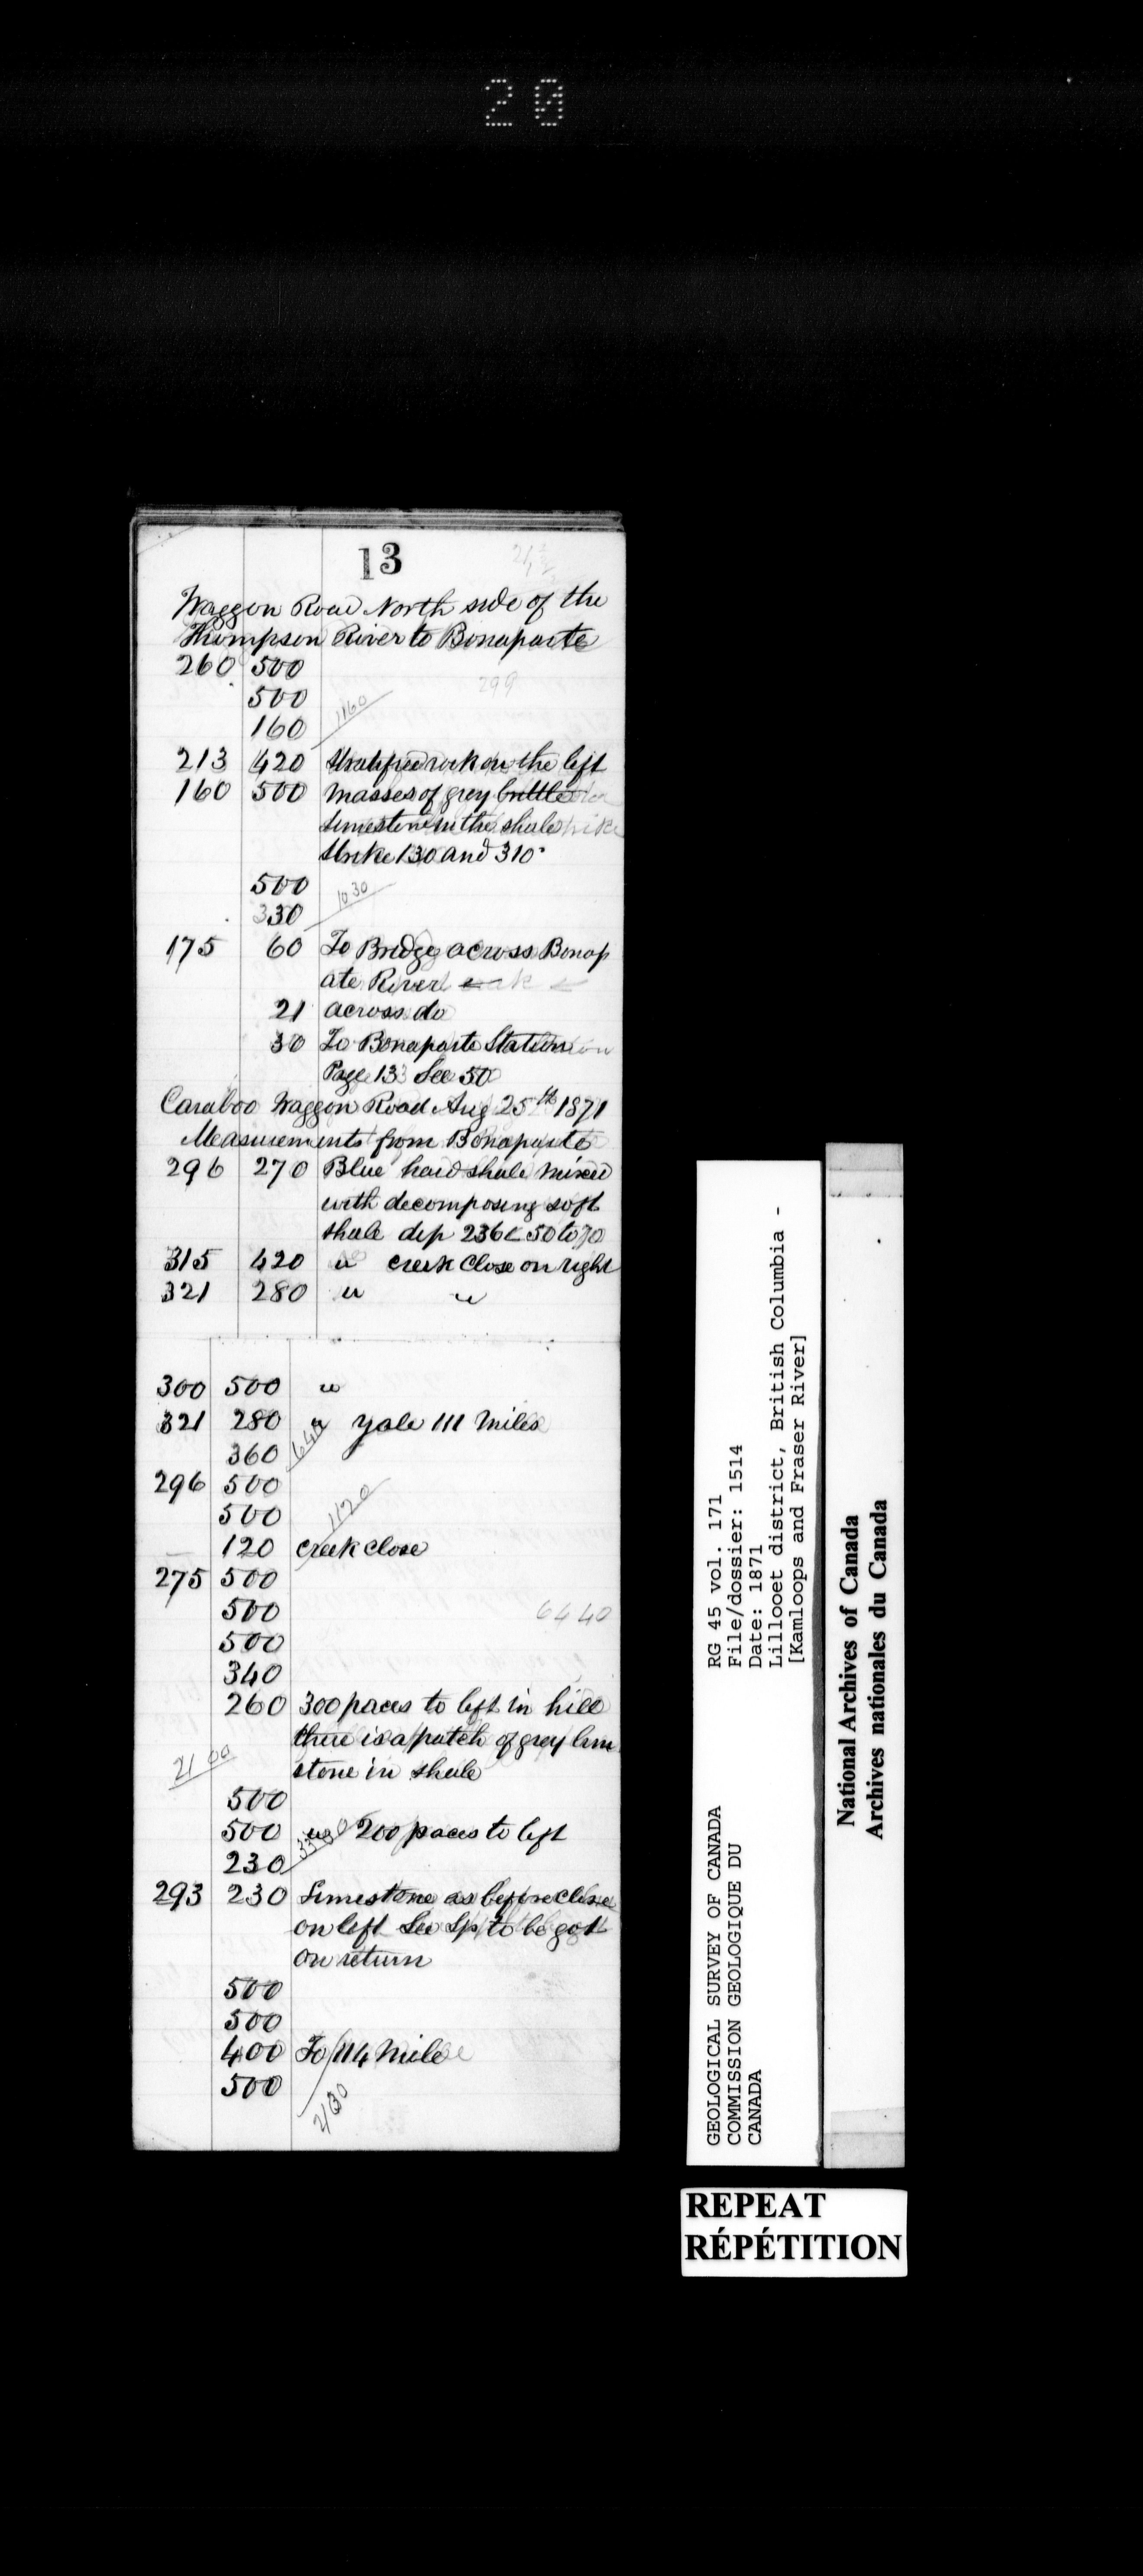 20
13
Waggon Road North side of the
Thompson River to Bonaparte
260 500
299
500
160 1160
213 420 Stratified rock on the left
160 500 masses of grey brittle
limestone in the shale
Strike 130 and 310°
500 1030
330
175 60 To Bridge across Bonap
ate River
21 across do
30 To Bonaparte Station
Page 13 See 50
Cariboo Waggon Road Aug 25th 1871
Measurements from Bonaparte
296 270 Blue hard shale mixed
with decomposing soft
shale dip 236 < 50 to 70
315 420 " creek close on right
321 280 " "
300 500 "
321 280 " Yale 111 Miles
360 640
296 500
500 1120
120 creek close
275 500
500 6440
500
340
260 300 paces to left in hill
there is a patch of grey lime
2100 stone in shale
500
500 " 200 paces to left
230
293 230 Limestone as before close
on left See Sp to be got
on return
500
500
400 To 114 Mile
500
2130
RG 45 vol. 171
File/dossier: 1514
Date: 1871
Lillooet district, British Columbia -
[Kamloops and Fraser River]
GEOLOGICAL SURVEY OF CANADA
COMMISSION GEOLOGIQUE DU
CANADA
National Archives of Canada
Archives nationales du Canada
REPEAT
RÉPÉTITION